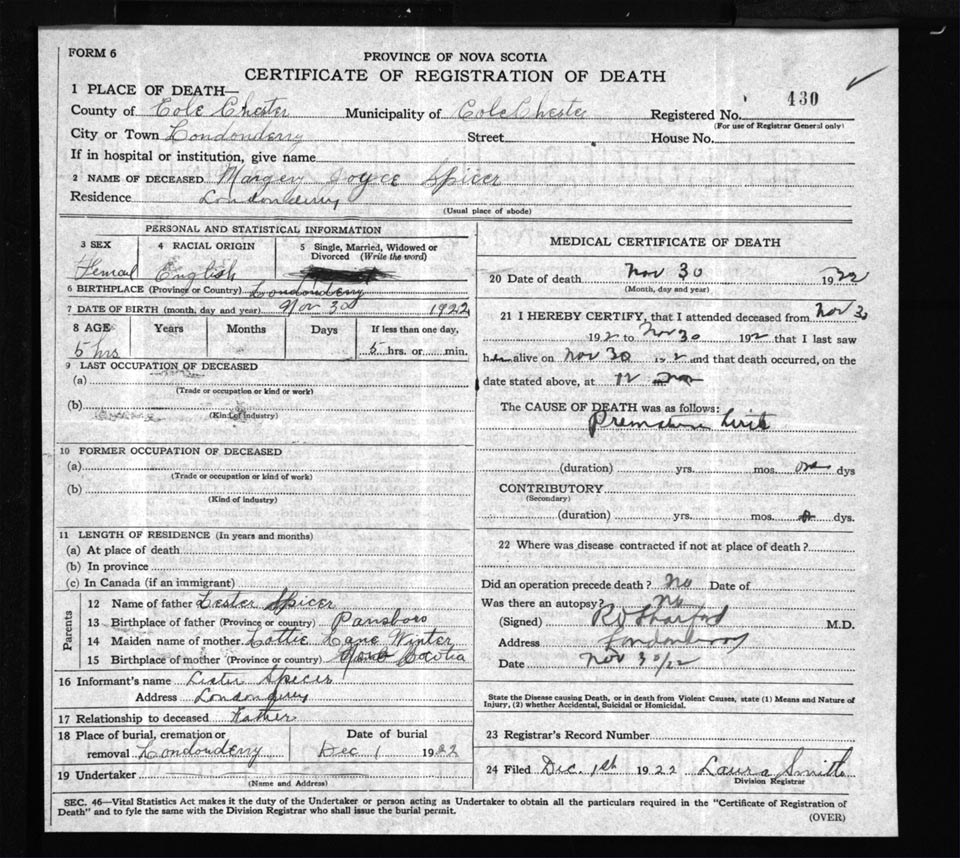 FORM 6
PROVINCE OF NOVA SCOTIA
CERTIFICATE OF REGISTRATION OF DEATH
1 PLACE OF DEATH—
County of Cole Chester Municipality of Cole Chester Registered No. 430
(For use of Registrar General only)
City or Town Londonderry Street House No.
If in hospital or institution, give name
2 NAME OF DECEASED Margery Joyce Spicer
Residence Londonderry
(Usual place of abode)
PERSONAL AND STATISTICAL INFORMATION
3 SEX 4 RACIAL ORIGIN 5 Single, Married, Widowed or
Divorced (Write the word)
Femail English
6 BIRTHPLACE (Province or Country) Londonderry
7 DATE OF BIRTH (month, day and year) Nov 30 1922
8 AGE Years Months Days If less than one day,
5 hrs 5 hrs. or min.
9 LAST OCCUPATION OF DECEASED
(a)
(Trade or occupation or kind or work)
(b)
(Kind of industry)
10 FORMER OCCUPATION OF DECEASED
(a)
(Trade or occupation or kind of work)
(b)
(Kind of industry)
11 LENGTH OF RESIDENCE (In years and months)
(a) At place of death
(b) In province
(c) In Canada (if an immigrant)
Parents
12 Name of father Lester Spicer
13 Birthplace of father (Province or country) Parrsboro
14 Maiden name of mother Lottie Jane Winter
15 Birthplace of mother (Province or country) Nova Scotia
16 Informant's name Lister Spicer
Address Londonderry
17 Relationship to deceased Father
18 Place of burial, cremation or Date of burial
removal Londonderry Dec 1 1922
19 Undertaker
(Name and Address)
MEDICAL CERTIFICATE OF DEATH
20 Date of death Nov 30 1922
(Month, day and year)
21 I HEREBY CERTIFY, that I attended deceased from Nov 30
192 to Nov 30 1922 that I last saw
her alive on Nov 30 192 and that death occurred, on the
date stated above, at 12 noon
The CAUSE OF DEATH was as follows:
Premature birth
(duration) yrs. mos. dys
CONTRIBUTORY
(Secondary)
(duration) yrs. mos. dys.
22 Where was disease contracted if not at place of death?
Did an operation precede death? No Date of
Was there an autopsy? No
(Signed) M.D.
Address Londonderry
Date Nov 30/22
State the Disease causing Death, or in death from Violent Causes, state (1) Means and Nature of
Injury, (2) whether Accidental, Suicidal or Homicidal.
23 Registrar's Record Number
24 Filed Dec. 1st 1922 Laura Smith
Division Registrar
SEC. 46—Vital Statistics Act makes it the duty of the Undertaker or person acting as Undertaker to obtain all the particulars required in the "Certificate of Registration of
Death" and to fyle the same with the Division Registrar who shall issue the burial permit.
(OVER)